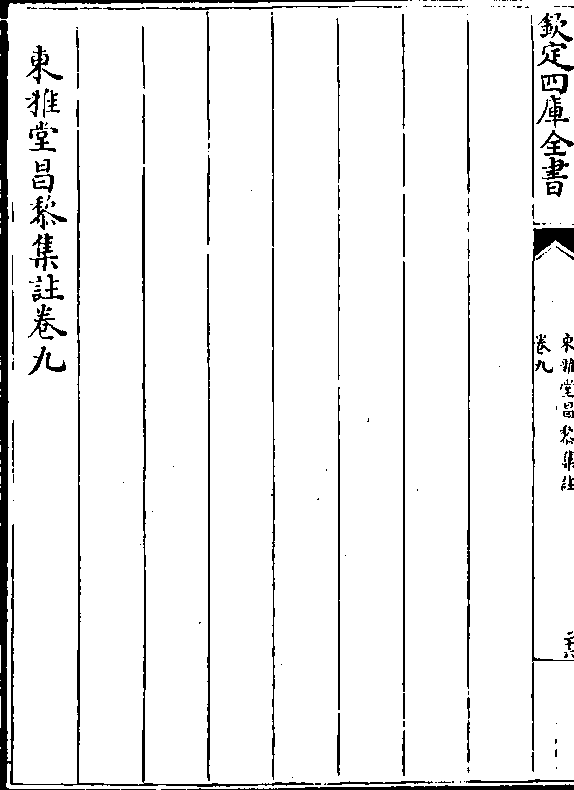 欽定四庫全書
東雅堂昌黎集註
卷九
東雅堂昌黎集註卷九